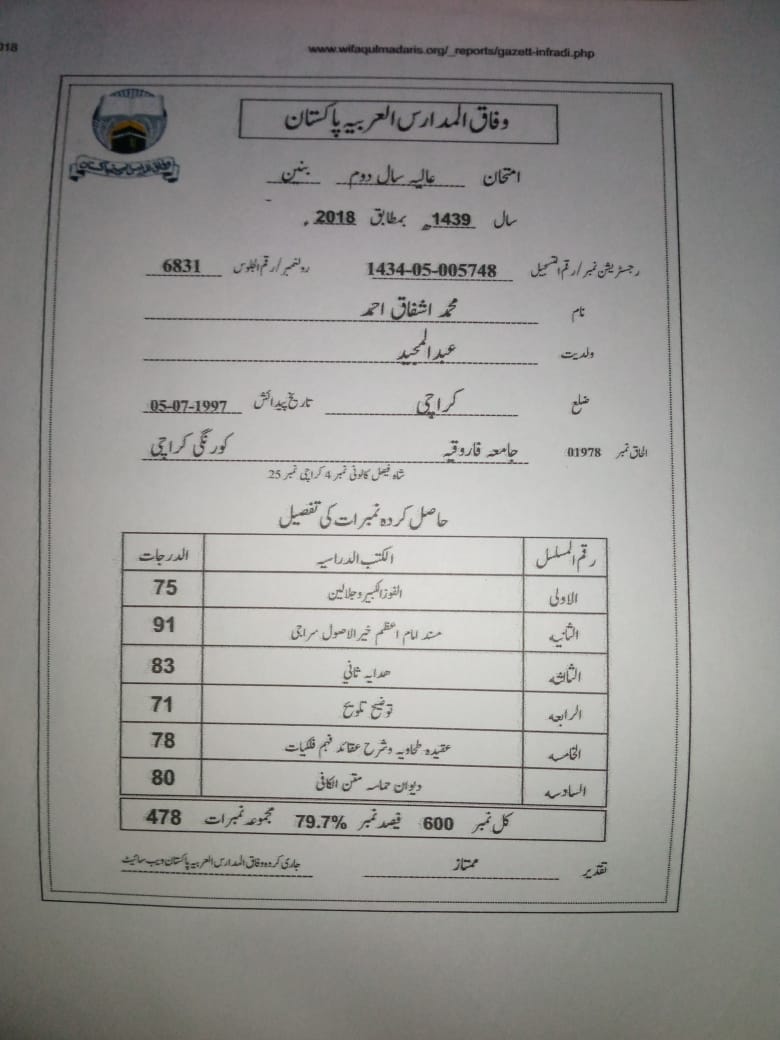 018
www.wifaqulmadaris.org/_reports/gazett-infradi.php
وفاق المدارس العربیہ پاکستان
وفاق المدارس العربیہ پاکستان
امتحان عالیہ سال دوم بنین
سال 1439ھ بمطابق 2018ء
رجسٹریشن نمبر/رقم التسجیل 1434-05-005748 رولنمبر/رقم الجلوس 6831
نام محمد اشفاق احمد
ولدیت عبدالمجید
ضلع کراچی تاریخ پیدائش 05-07-1997
الحاق نمبر 01978 جامعہ فاروقیہ کورنگی کراچی
شاہ فیصل کالونی نمبر 4 کراچی نمبر 25
حاصل کردہ نمبرات کی تفصیل
رقم المسلسل الکتب الدراسیہ الدرجات
الاولی الفوزالکبیر وجلالین 75
الثانیہ مسند امام اعظم خیرالاصول سراجی 91
الثالثہ ھدایہ ثانی 83
الرابعہ توضیح تلویح 71
الخامسہ عقیدہ طحاویہ وشرح عقائد فہم فلکیات 78
السادسہ دیوان حماسہ متن الکافی 80
کل نمبر 600 فیصد نمبر 79.7% مجموعہ نمبرات 478
تقدیر ممتاز جاری کردہ وفاق المدارس العربیہ پاکستان ویب سائیٹ